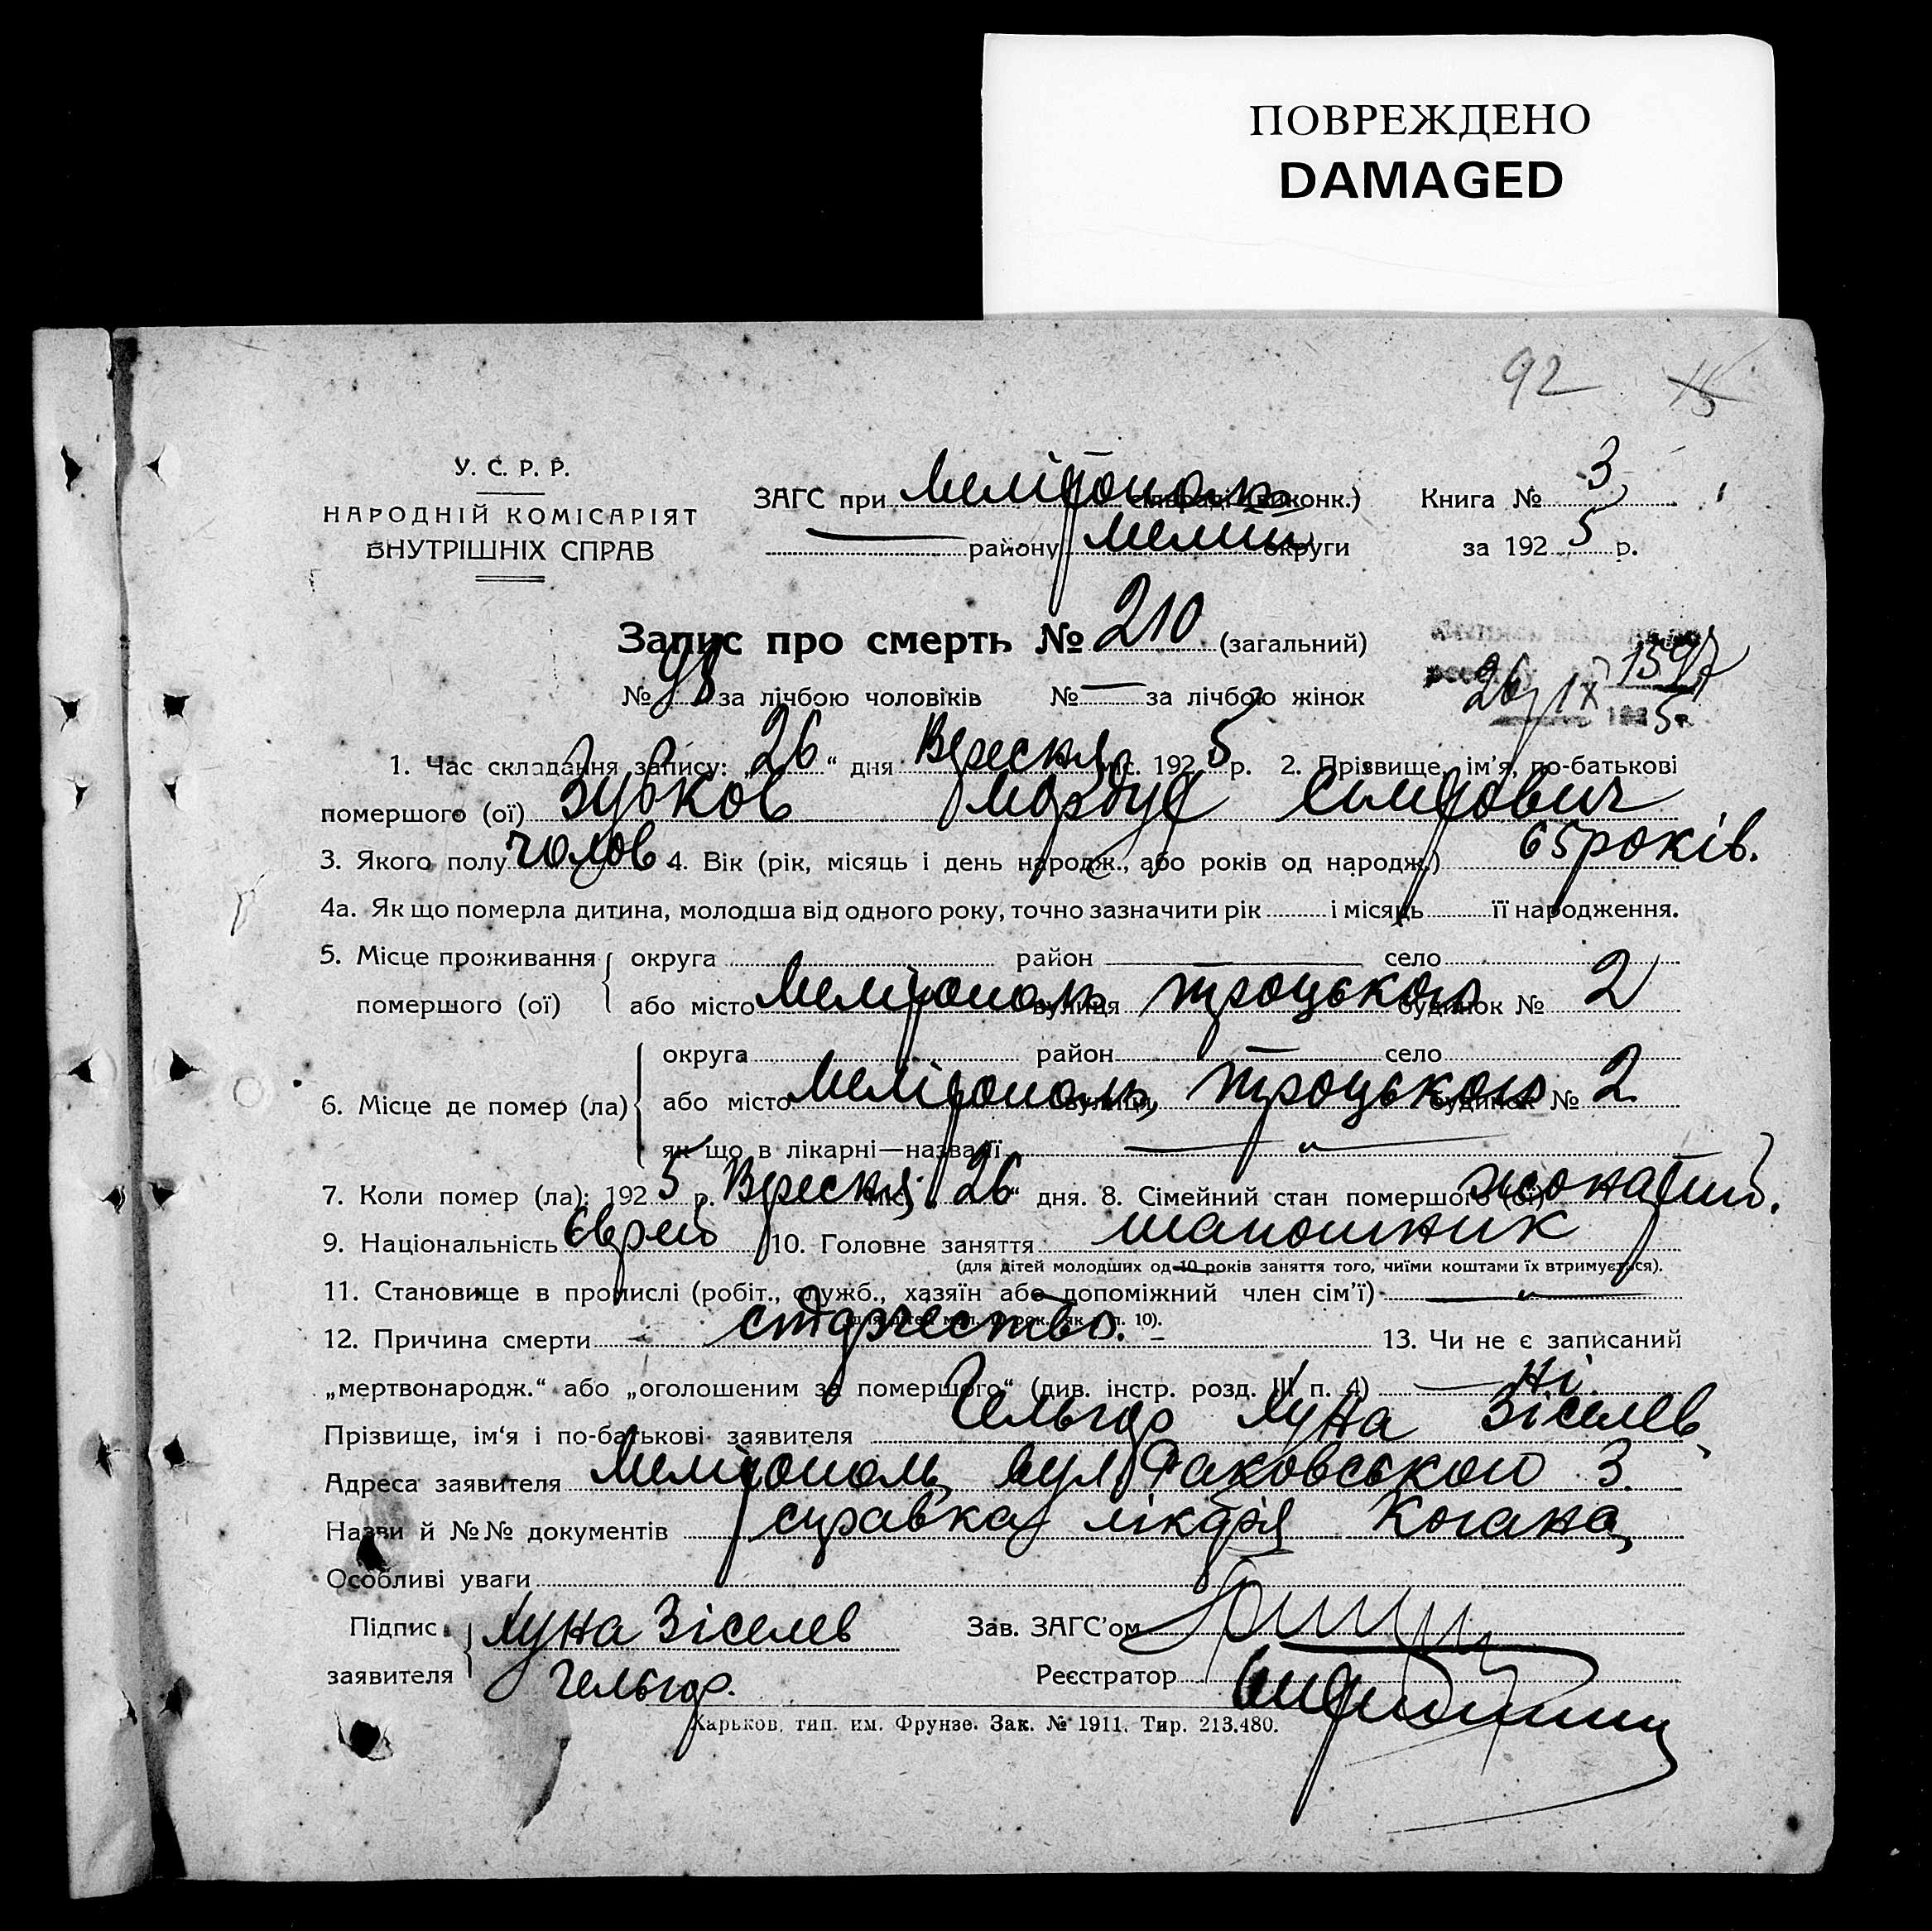 ПОВРЕЖДЕНО
DAMAGED
92 15
У. С. Р. Р.
НАРОДНІЙ КОМІСАРІЯТ
ВНУТРІШНІХ СПРАВ
ЗАГС при Мелітополь (виконк.) Книга № 3
району Меліт округи за 1925 р.
Запис про смерть № 210 (загальний)
№ 98 за лічбою чоловіків № — за лічбою жінок
26/IX 1925 р.
1. Час складання запису: „26“ дня Вересня міс. 1925 р. 2. Прізвище, ім'я, по-батькові
помершого (ої) Зубков Мордух
3. Якого полу чолов 4. Вік (рік, місяць і день народж., або років од народж.) 65 років.
4а. Як що померла дитина, молодша від одного року, точно зазначити рік і місяць її народження.
5. Місце проживання округа район — село
помершого (ої) або місто Мелітополь вулиця Троцького будинок № 2
округа район — село
6. Місце де помер (ла) або місто Мелітополь, вулиця Троцького будинок № 2
як що в лікарні—назва її — „ —
7. Коли помер (ла): 1925 р. Вересня міс. „26“ дня. 8. Сімейний стан помершого (ої) жонатий.
9. Національність Єврей 10. Головне заняття шапошник
(для дітей молодших од 10 років заняття того, чиїми коштами їх втримується).
11. Становище в промислі (робіт., служб., хазяїн або допоміжний член сім'ї) — „ —
12. Причина смерти — старчество. — 13. Чи не є записаний
„мертвонародж.“ або „оголошеним за помершого“ (див. інстр. розд. III п. 4) — Ні.
Прізвище, ім'я і по-батькові заявителя Гельгор Хуна Зіселев
Адреса заявителя Мелітополь, вул. Раковського 3.
Назви й №№ документів справка лікаря Когана
Особливі уваги
Підпис заявителя Хуна Зіселев Зав. ЗАГС'ом
Гельгор. Реєстратор
Харьков, тип. им. Фрунзе. Зак. № 1911. Тир. 213.480.